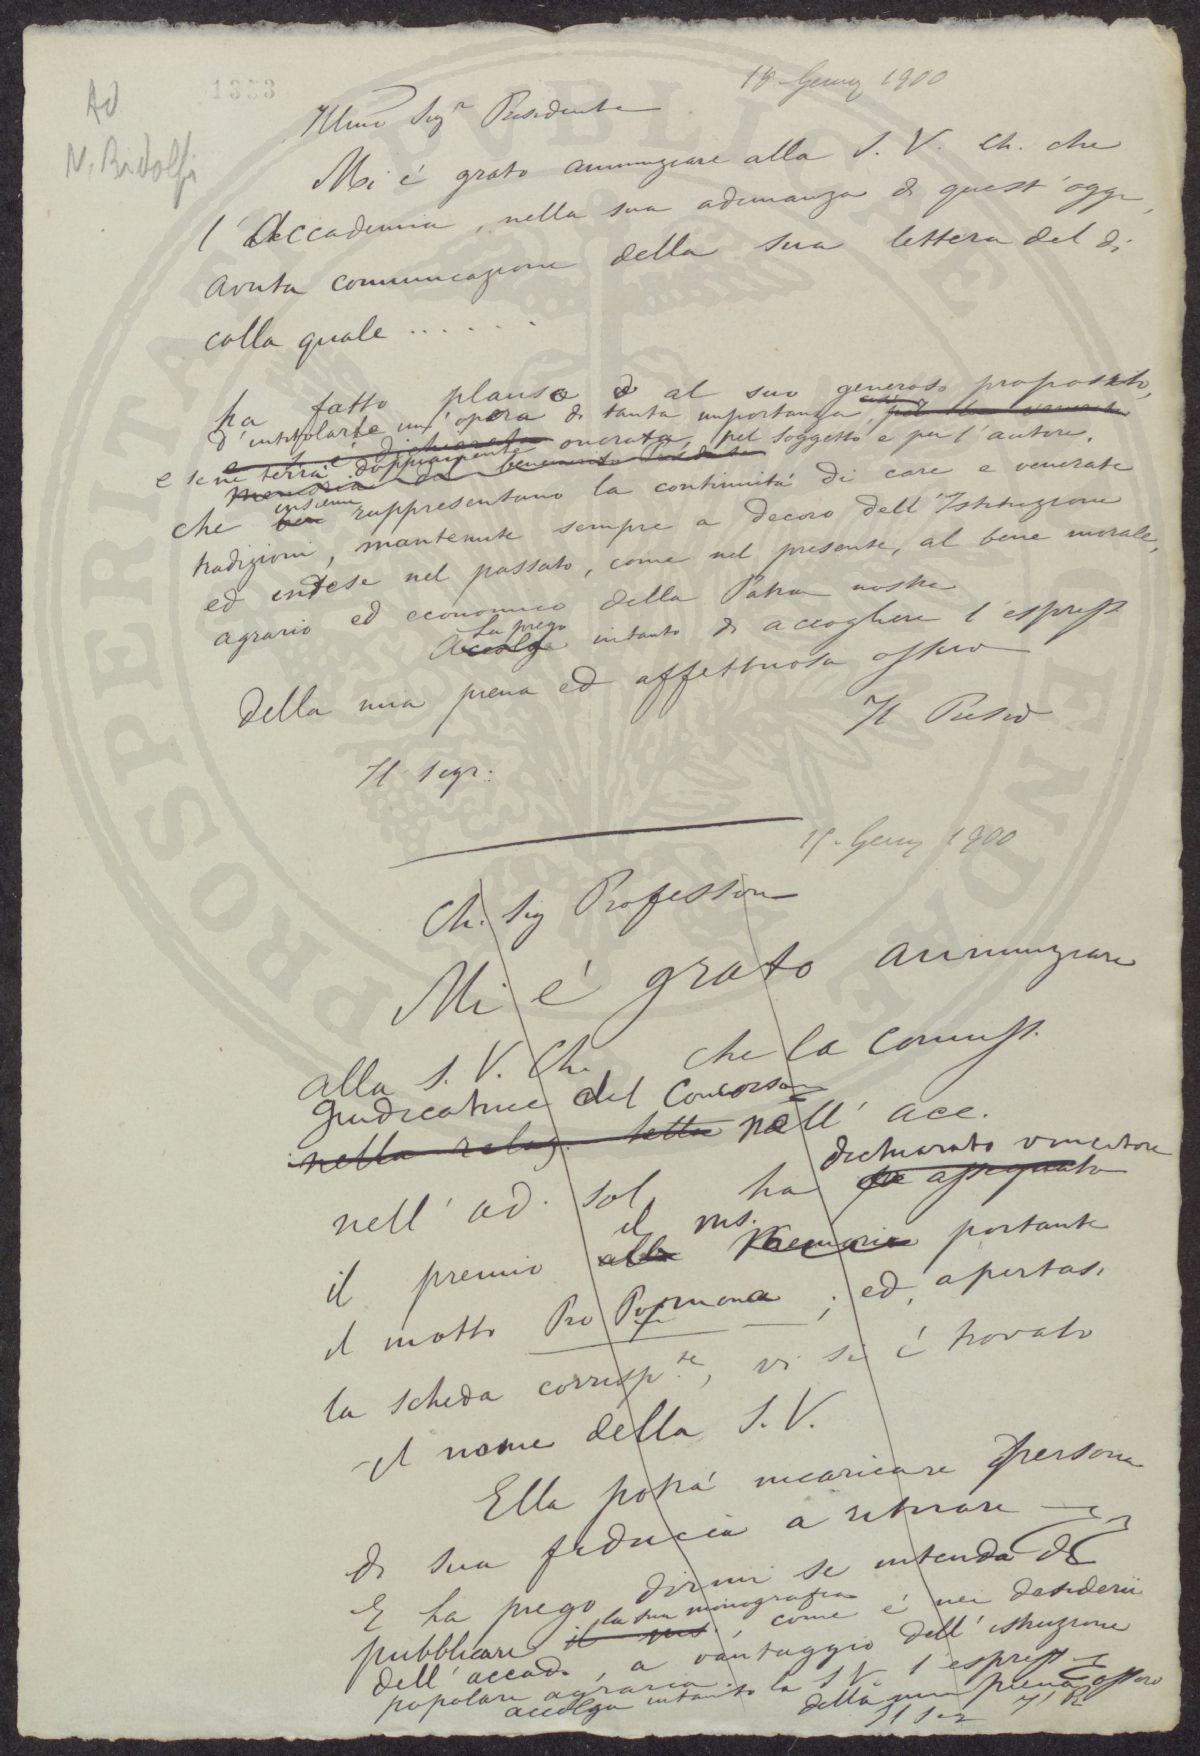 Ad
N. Ridolfi
1353
18. Genn 1900
Illmo Sigr Presidente
Mi è grato annunziare alla S. V. Ch. che
l'Accademia, nella sua adunanza di quest'oggi,
avuta comunicazione della sua lettera del di
colla quale ......
ha fatto plauso al suo generoso proposito,
d'intitolarle un'opera di tanta importanza
e se ne terrà doppiamente onorata, pel soggetto e per l'autore,
che insieme rappresentano la continuità di care e venerate
tradizioni, mantenute sempre a decoro dell'Istituzione
ed intese nel passato, come nel presente, al bene morale,
agrario ed economico della Patria nostra
La prego intanto di accogliere l'espress
della mia piena ed affettuosa osserv
Il Presid
Il Segr.
15. Genn 1900
Ch. Sig Professore
Mi è grato annunziare
alla S. V. Ch. che la Commiss.
giudicatrice del Concorso
nella relaz. letta nell' acc.
dichiarato vincitore
nell' ad. sol ha assegnato
il ms.
il premio alla Memoria portante
il motto Pro Pomona; ed, apertasi
la scheda corrispte, vi si è trovato
il nome della S. V.
Ella potrà incaricare persona
di sua fiducia a ritirare
E la prego dirmi se intenda di
la sua monografia
pubblicare il ms., come è nei desiderii
dell' accad., a vantaggio dell' istruzione
popolare agraria.
accolga intanto la S. V. l'espress
della mia piena osserv
Il Seg Il P.